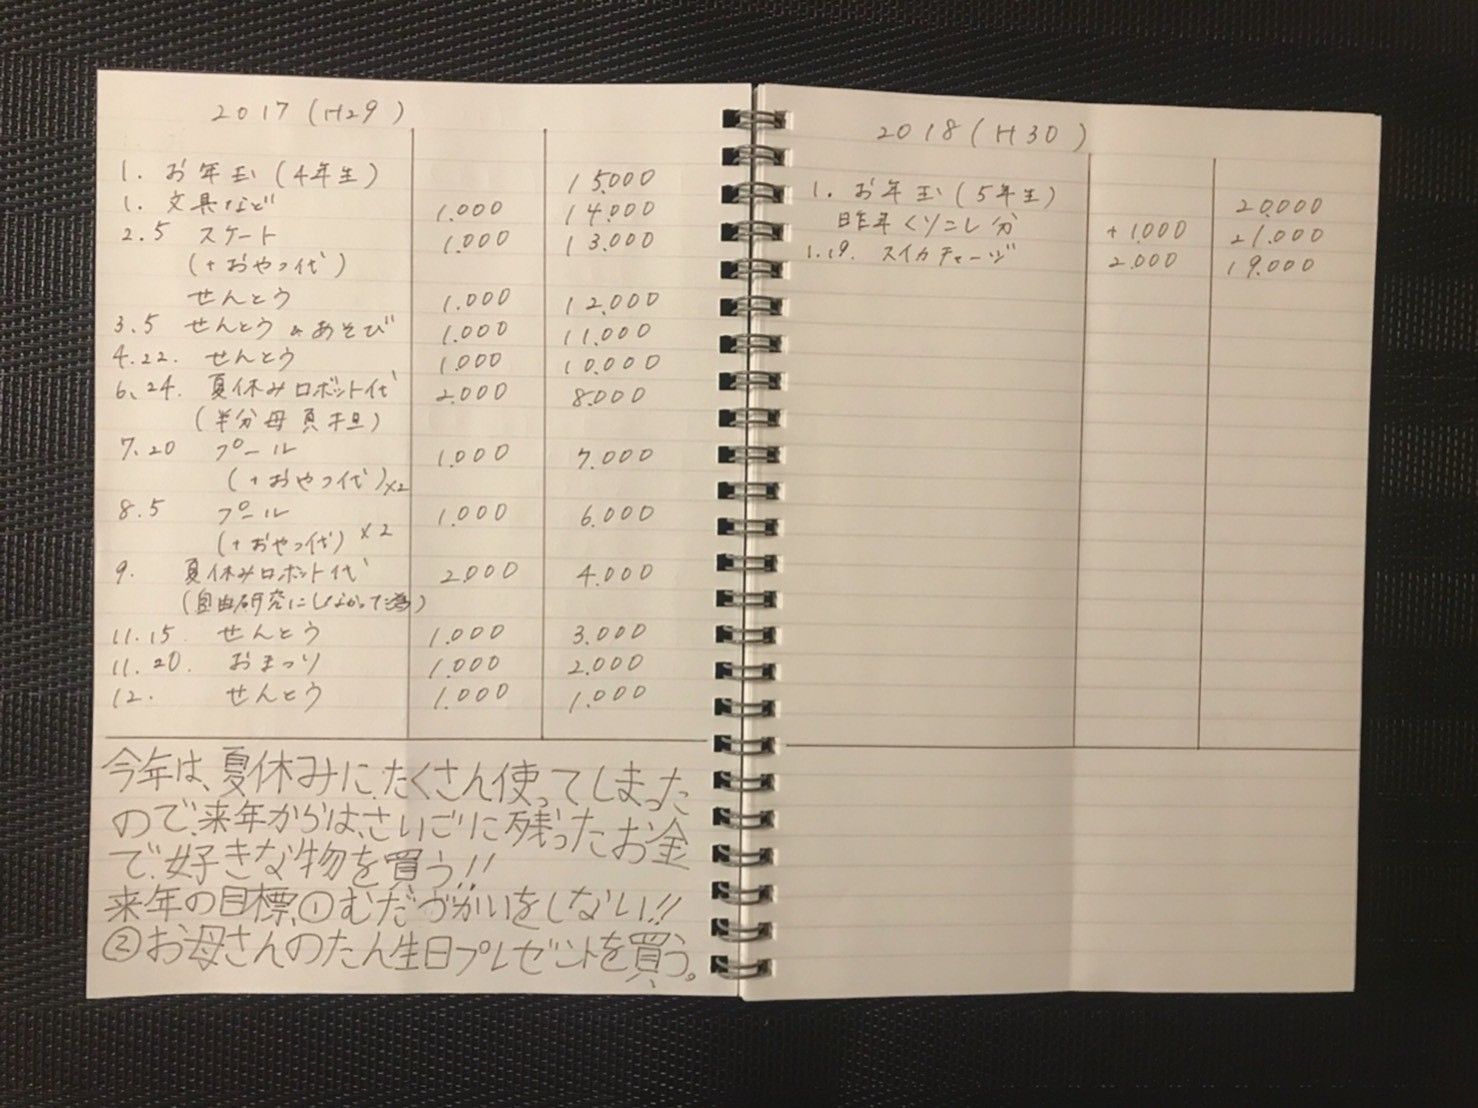 2017(H29)
1. お年玉(4年生) 15.000
1. 文具など 1.000 14.000
2.5 スケート 1.000 13.000
(+おやつ代)
せんとう 1.000 12.000
3.5 せんとう&あそび 1.000 11.000
4.22. せんとう 1.000 10.000
6.24. 夏休みロボット代 2.000 8.000
(半分母負担)
7.20 プール 1.000 7.000
(+おやつ代)×2
8.5 プール 1.000 6.000
(+おやつ代)×2
9. 夏休みロボット代 2.000 4.000
(自由研究にしなかった為)
11.15. せんとう 1.000 3.000
11.20. おまつり 1.000 2.000
12. せんとう 1.000 1.000
今年は、夏休みに、たくさん使ってしまった
ので、来年からは、さいごに残ったお金
で、好きな物を買う!!
来年の目標、①むだづかいをしない!!
②お母さんのたん生日プレゼントを買う。
2018(H30)
1. お年玉(5年生) 20.000
昨年くりこし分 +1.000 21.000
1.19. スイカチャージ 2.000 19.000